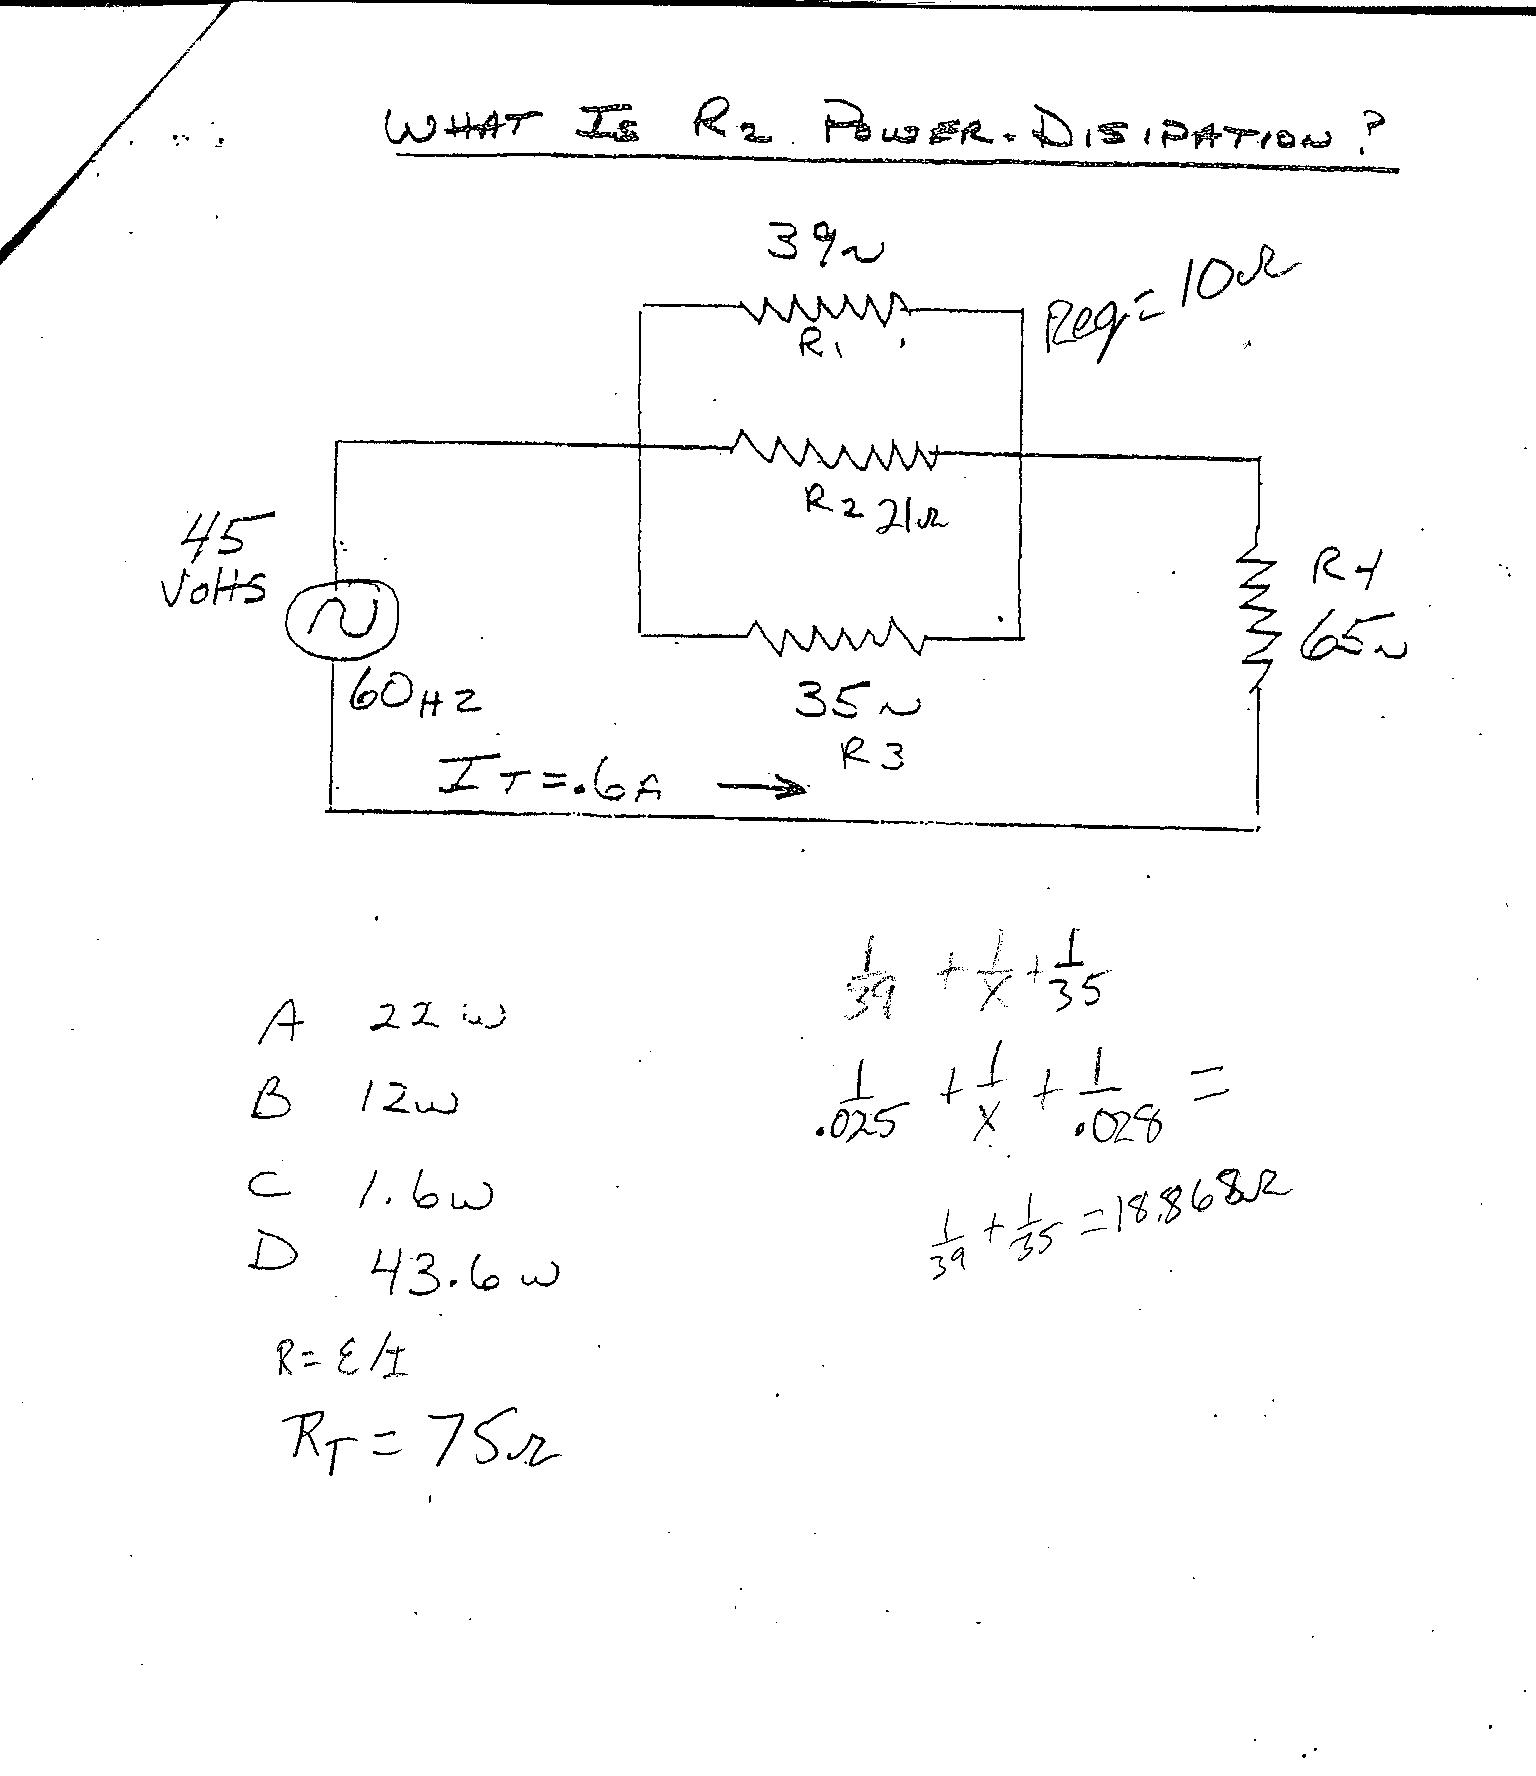 WHAT IS R2 POWER DISIPATION?
39Ω
Req = 10Ω
R1
R2 21Ω
45
Volts
R4
65Ω
60Hz
35Ω
R3
IT = .6A →
1/39 + 1/x + 1/35
A 22w
1/.025 + 1/x + 1/.028 =
B 12w
C 1.6w
1/39 + 1/35 = 18.868Ω
D 43.6w
R = E/I
RT = 75Ω